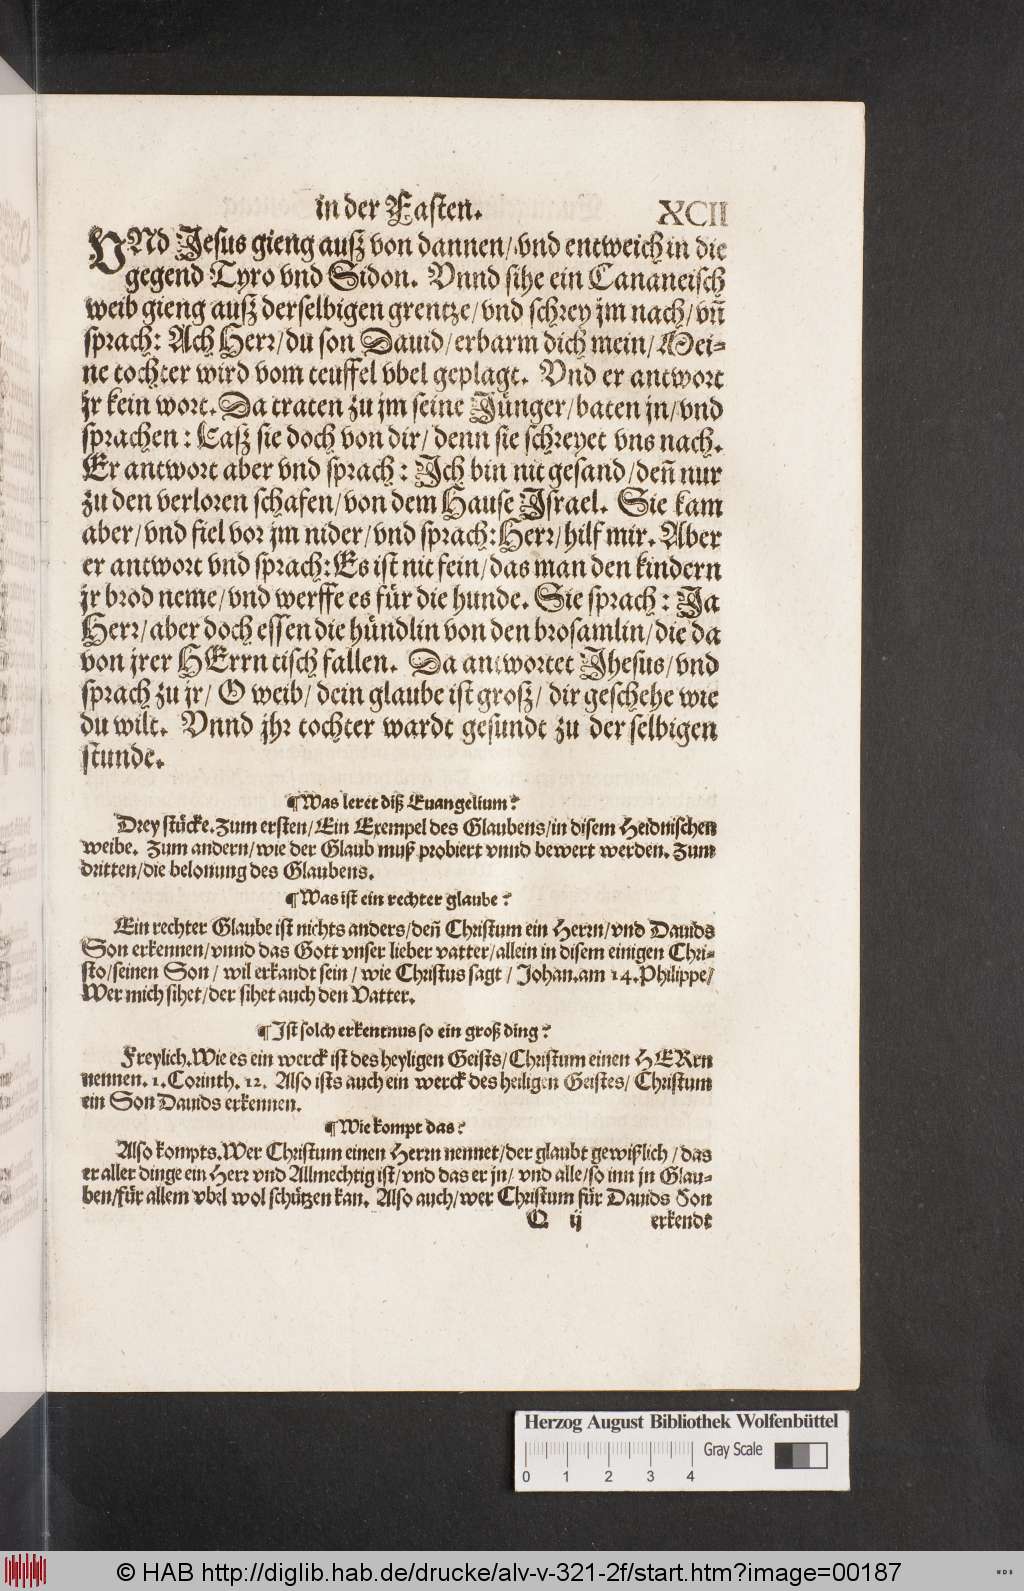 in der Fasten. XCII
VNd Jesus gieng auß von dannen/ vnd entweich in die
gegend Tyro vnd Sidon. Vnnd sihe ein Cananeisch
weib gieng auß derselbigen grentze/ vnd schrey jm nach/ vn̄
sprach: Ach Herr/ du son Dauid/ erbarm dich mein/ Mei-
ne tochter wird vom teuffel vbel geplagt. Vnd er antwort
jr kein wort. Da traten zu jm seine Jünger/ baten jn/ vnd
sprachen: Laß sie doch von dir/ denn sie schreyet vns nach.
Er antwort aber vnd sprach: Ich bin nit gesand/ den̄ nur
zu den verloren schafen/ von dem Hause Israel. Sie kam
aber/ vnd fiel vor jm nider/ vnd sprach: Herr/ hilf mir. Aber
er antwort vnd sprach: Es ist nit fein/ das man den kindern
jr brod neme/ vnd werffe es für die hunde. Sie sprach: Ja
Herr/ aber doch essen die hündlin von den brosamlin/ die da
von jrer HErrn tisch fallen. Da antwortet Jhesus/ vnd
sprach zu jr/ O weib/ dein glaube ist groß/ dir geschehe wie
du wilt. Vnnd jhr tochter wardt gesundt zu der selbigen
stunde.
¶ Was leret diß Euangelium?
Drey stücke. Zum ersten/ Ein Exempel des Glaubens/ in disem Heidnischen
weibe. Zum andern/ wie der Glaub muß probiert vnnd bewert werden. Zum
dritten/ die belonung des Glaubens.
¶ Was ist ein rechter glaube?
Ein rechter Glaube ist nichts anders/ den̄ Christum ein Herrn/ vnd Dauids
Son erkennen/ vnnd das Gott vnser lieber vatter/ allein in disem einigen Chri-
sto/ seinen Son/ wil erkandt sein/ wie Christus sagt/ Johan. am 14. Philippe/
Wer mich sihet/ der sihet auch den Vatter.
¶ Ist solch erkentnus so ein groß ding?
Freylich. Wie es ein werck ist des heyligen Geists/ Christum einen HERrn
nennen. 1. Corinth. 12. Also ists auch ein werck des heiligen Geistes/ Christum
ein Son Dauids erkennen.
¶ Wie kompt das?
Also kompts. Wer Christum einen Herrn nennet/ der glaubt gewißlich/ das
er aller dinge ein Herr vnd Allmechtig ist/ vnd das er jn/ vnd alle/ so inn jn Glau-
ben/ für allem vbel wol schützen kan. Also auch/ wer Christum für Dauids Son
Q ij erkendt
Herzog August Bibliothek Wolfenbüttel
Gray Scale
0 1 2 3 4
© HAB http://diglib.hab.de/drucke/alv-v-321-2f/start.htm?image=00187